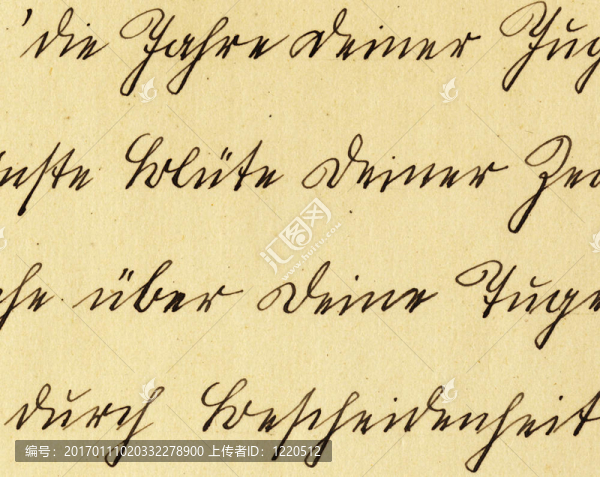 die Jahre Deiner Jug
nste Blüte Deiner Zei
che über Deine Tuge
durch Bescheidenheit
汇图网
www.huitu.com
编号: 20170111020332278900 上传者ID: 1220512